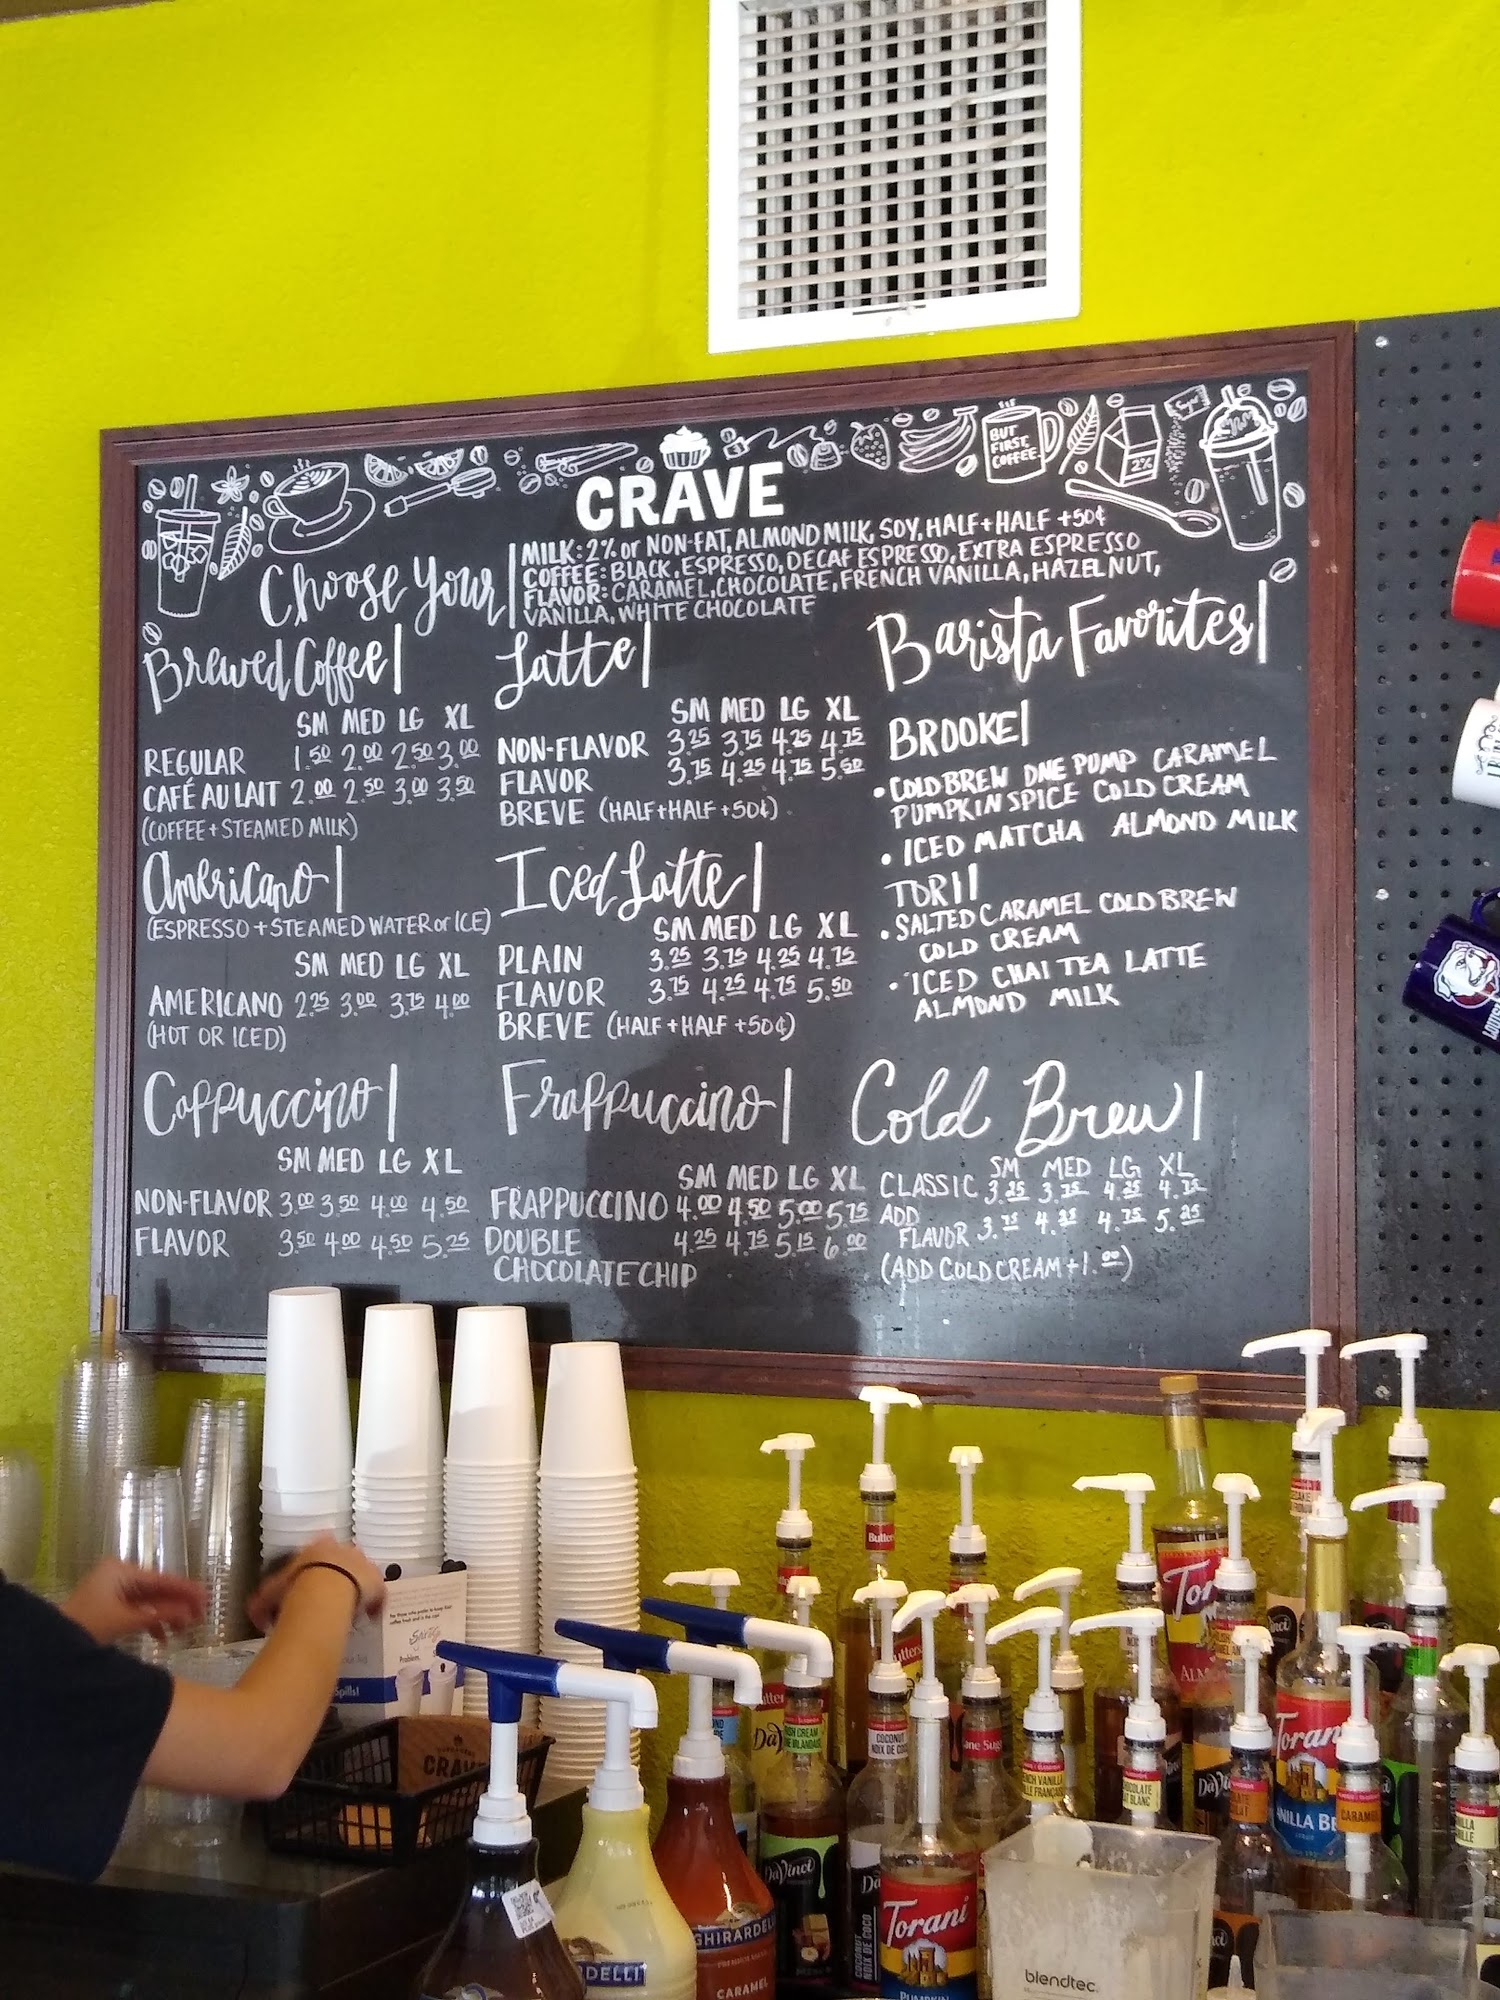 BUT
FIRST,
COFFEE.
2%
Sugar
CRAVE
Choose Your
MILK: 2% or NON-FAT, ALMOND MILK, SOY, HALF + HALF +50¢
COFFEE: BLACK, ESPRESSO, DECAF ESPRESSO, EXTRA ESPRESSO
FLAVOR: CARAMEL, CHOCOLATE, FRENCH VANILLA, HAZELNUT,
VANILLA, WHITE CHOCOLATE
Brewed Coffee
SM MED LG XL
REGULAR 1.50 2.00 2.50 3.00
CAFÉ AU LAIT 2.00 2.50 3.00 3.50
(COFFEE + STEAMED MILK)
Americano
(ESPRESSO + STEAMED WATER or ICE)
SM MED LG XL
AMERICANO 2.25 3.00 3.75 4.00
(HOT OR ICED)
Cappuccino
SM MED LG XL
NON-FLAVOR 3.00 3.50 4.00 4.50
FLAVOR 3.50 4.00 4.50 5.25
Latte
SM MED LG XL
NON-FLAVOR 3.25 3.75 4.25 4.75
FLAVOR 3.75 4.25 4.75 5.50
BREVE (HALF + HALF + 50¢)
Iced Latte
SM MED LG XL
PLAIN 3.25 3.75 4.25 4.75
FLAVOR 3.75 4.25 4.75 5.50
BREVE (HALF + HALF + 50¢)
Frappuccino
SM MED LG XL
FRAPPUCCINO 4.00 4.50 5.00 5.75
DOUBLE 4.25 4.75 5.15 6.00
CHOCOLATE CHIP
Barista Favorites
BROOKE
• COLD BREW ONE PUMP CARAMEL
PUMPKIN SPICE COLD CREAM
• ICED MATCHA ALMOND MILK
TORI
• SALTED CARAMEL COLD BREW
COLD CREAM
• ICED CHAI TEA LATTE
ALMOND MILK
Cold Brew
SM MED LG XL
CLASSIC 3.25 3.75 4.25 4.75
ADD
FLAVOR 3.75 4.25 4.75 5.25
(ADD COLD CREAM + 1.00)
Problem.
Spills!
CRAVE
DaVinci
COCONUT
NOIX DE COCO
Torani
PUMPKIN
GHIRARDELLI
CARAMEL
DELLI
blendtec
Torani
VANILLA BE
CARAMEL